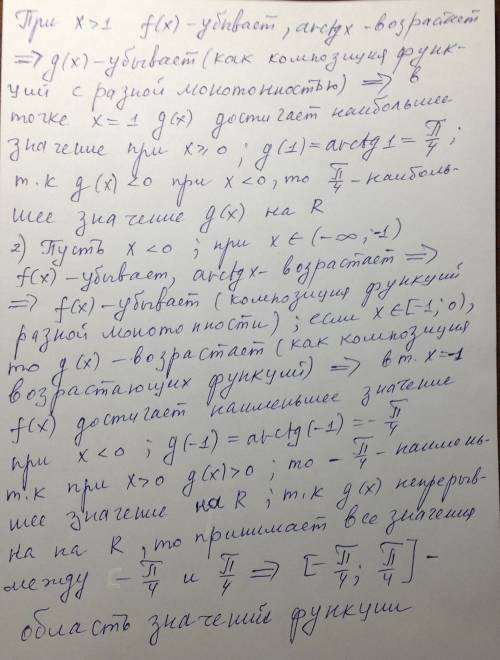 При x>1 f(x)-убывает, arctgx-возрастает
⇒ g(x)-убывает (как композиция функ-
ций с разной монотонностью) ⇒ в
точке x=1 g(x) достигает наибольшее
значение при x⩾0; g(1)=arctg1=π/4;
т.к g(x)<0 при x<0, то π/4-наиболь-
шее значение g(x) на R
2) Пусть x<0; при x∈(-∞;-1)
f(x)-убывает, arctgx-возрастает ⇒
⇒ f(x)-убывает (композиция функций
разной монотонности); если x∈[-1;0),
то g(x)-возрастает (как композиция
возрастающих функций) ⇒ в т. x=-1
f(x) достигает наименьшее значение
при x<0; g(-1)=arctg(-1)=-π/4
т.к при x>0 g(x)>0; то -π/4-наимень-
шее значение на R; т.к g(x) непрерыв-
на на R, то принимает все значения
между -π/4 и π/4 ⇒ [-π/4; π/4]-
область значений функции